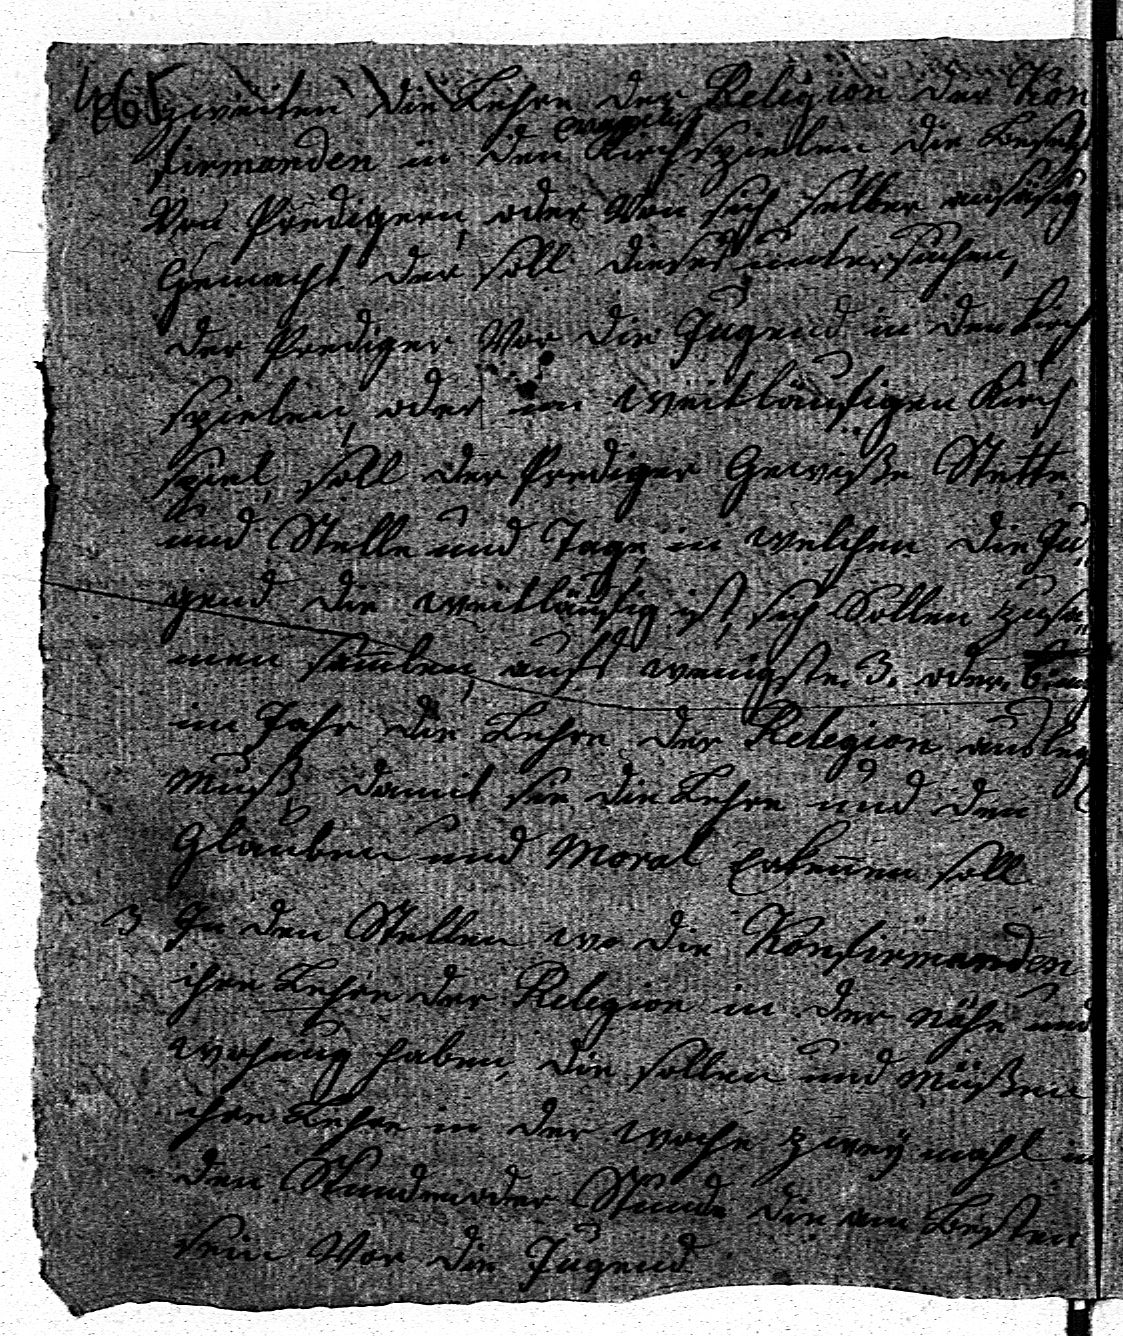 zweiten die Lehre der Religion der Kon
firmanden in den Kirchspielen die Besez
Von Predigern, oder Von sich selber ansäsig
Gemacht der soll dieses untersuchen,
der Prediger Vor die Jugend in den Kirch
spielen, oder im weitläufigen Kirch
spiel, soll der Prediger Gewiße Stette
und Stelle und Tage, in welchen die Ju
gend die weitläufig ist, sich Sollen zusa
men samlen, aufs wenigste 3. oder
im Jahr die Lehre der Religion ausleg
muß damit sie die Lehre und den
Glauben und Moral Erkennen soll
3 In den Stellen wo die Konfirmanden
ihre Lehre der Religion in der nähe und
wohnung haben, die sollen und müßen
ihre Lehre in der woche zwey mahl in
den Stunden oder Stunde die am Besten
sein Vor die Jugend